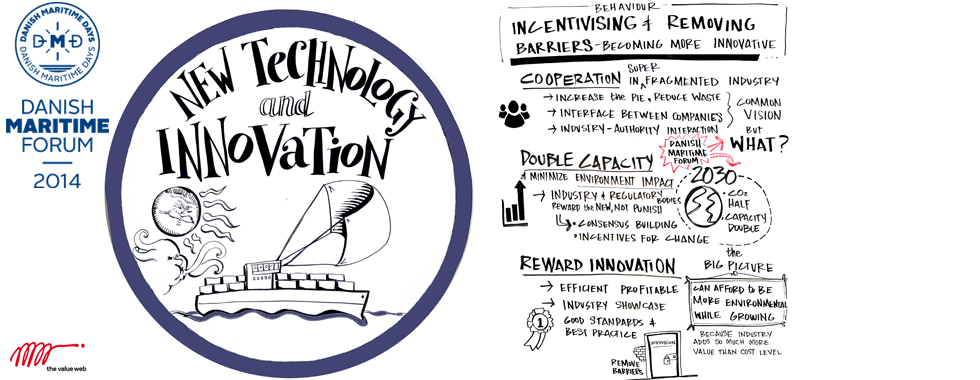 DANISH MARITIME DAYS
DMD
DANISH MARITIME DAYS
DANISH
MARITIME
FORUM
2014
the value web
NEW TECHNOLOGY
and
INNOVATION
BEHAVIOUR
INCENTIVISING & REMOVING
BARRIERS - BECOMING MORE INNOVATIVE
COOPERATION IN SUPER FRAGMENTED INDUSTRY
→ INCREASE the PIE, REDUCE WASTE
→ INTERFACE BETWEEN COMPANIES
→ INDUSTRY-AUTHORITY INTERACTION
COMMON
VISION
BUT
WHAT?
DANISH
MARITIME
FORUM
DOUBLE CAPACITY
& MINIMIZE ENVIRONMENT IMPACT
→ INDUSTRY & REGULATORY BODIES
REWARD the NEW, NOT PUNISH
• CONSENSUS BUILDING
• INCENTIVES FOR CHANGE
2030
• CO2
HALF
• CAPACITY
DOUBLE
the
BIG PICTURE
REWARD INNOVATION
→ EFFICIENT PROFITABLE
→ INDUSTRY SHOWCASE
→ GOOD STANDARDS &
BEST PRACTICE
1
CAN AFFORD to BE
MORE ENVIRONMENTAL
WHILE GROWING
BECAUSE INDUSTRY
ADDS SO MUCH MORE
VALUE THAN COST LEVEL
INNOVATION
REMOVE
BARRIERS